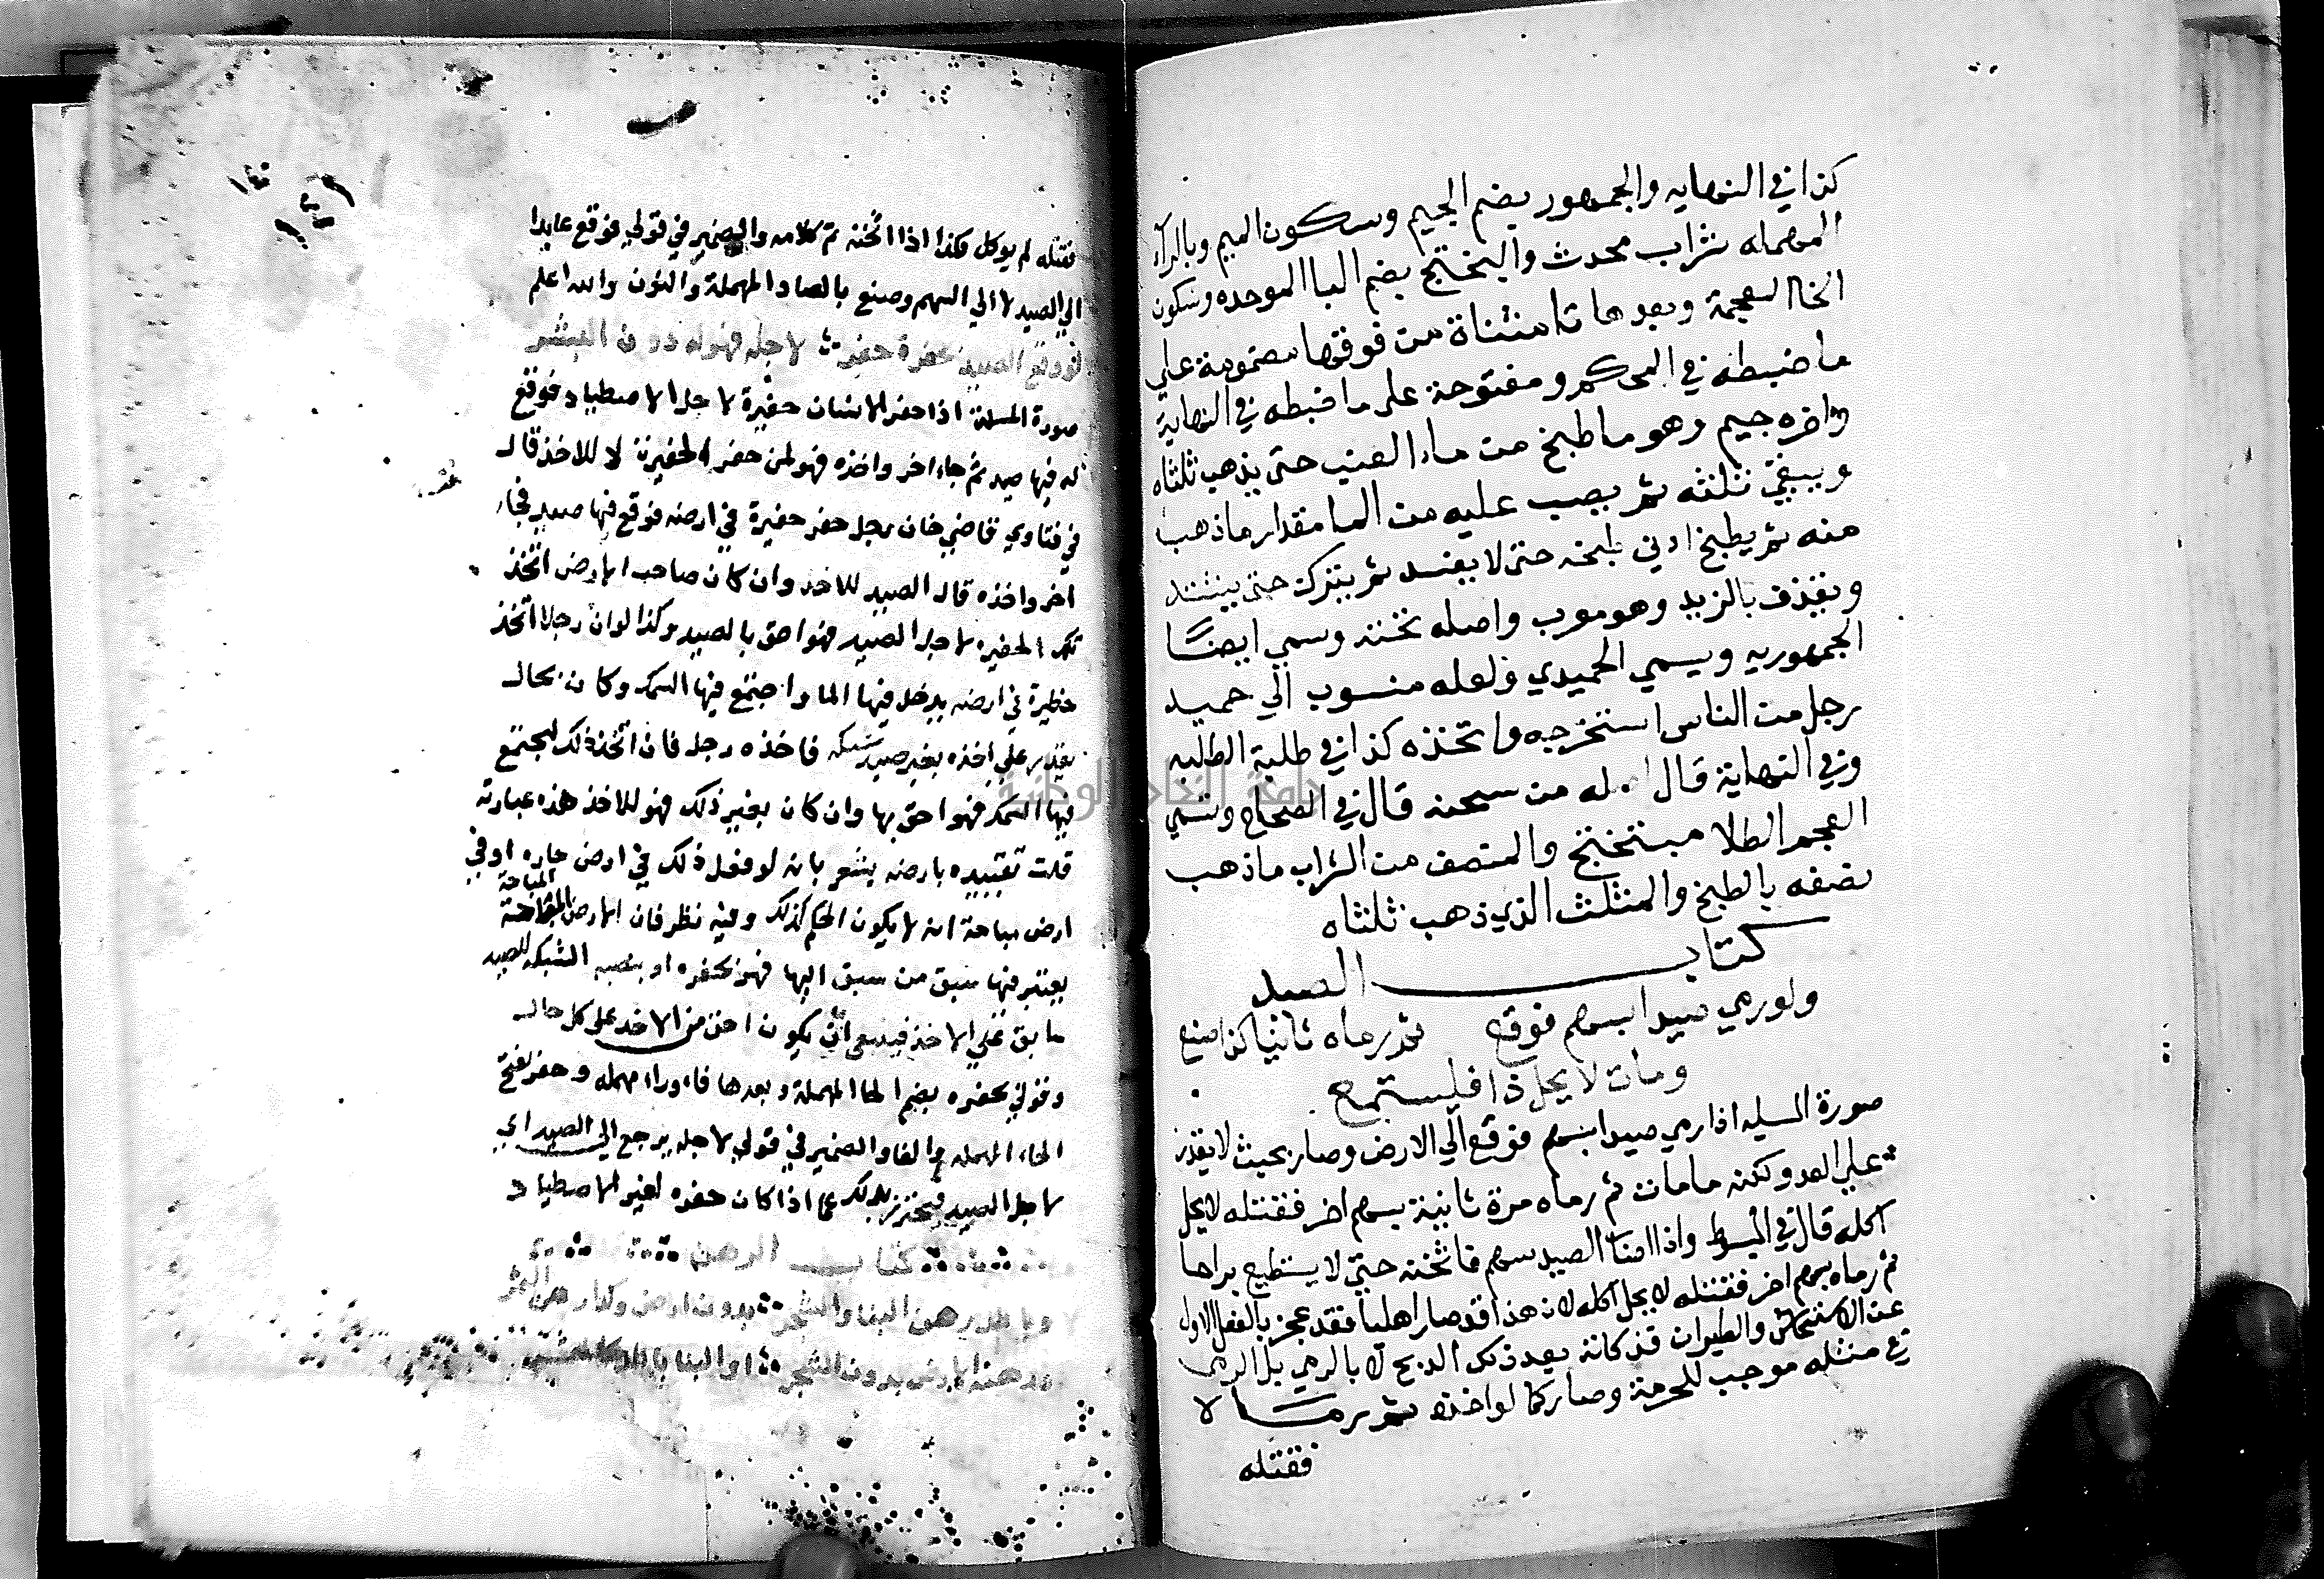 كذا في النهايه والجمهور بضم الجيم وسكون الميم وبالراء
المهمله شراب محدث والبختج بضم البا الموحده وسكون
الخا المعجمة وبعدها تا مثناة من فوقها مضمومة علي
ما ضبطه في المحكم ومفتوحة على ما ضبطه في النهاية
واخره جيم وهو ما طبخ من ماء العنب حتى يذهب ثلثاه
ويبقي ثلثه ثم يصب عليه من الما مقدار ما ذهب
منه ثم يطبخ ادني طبخه حتى لا يفسد ثم يترك حتى يشتد
ويقذف بالزبد وهو معرب واصله بخته وسمي ايضا
الجمهوريه ويسمي الحميدي ولعله منسوب الي حميد
رجل من الناس استخرجه واتخذه كذا في طلبة الطلبه
وفي النهاية قال من قال في الصحاح وتسمي
العجم الطلا مبتختج والمنصف من الشراب ما ذهب
نصفه بالطبخ والمثلث الذي ذهب ثلثاه
كتاب الصيد
ولو رمي صيدا بسهم فوقع ثم رماه ثانيا كذا صنع
ومات لا يحل ذا فليستمع
صورة المسله اذا رمي صيدا بسهم فوقع الي الارض وصار بحيث لا يقدر
علي العدو لكنه ما مات ثم رماه مرة ثانية بسهم اخر فقتله لا يحل
اكله قال في المبسوط واذا الصيد بسهم فاثخنه حتي لا يستطيع براحا
ثم رماه بسهم اخر فقتله لا يحل اكله لان هذا قد صار اهليا فقد عجز بالفعل الاول
عن الاستيحاش والطيران فذكاته بعد ذلك الذبح لا بالرمي بل الرمي
في مثله موجب للحرمة وصار كما لو اخذه ثم لا
فقتله
فقتله لم يوكل هكذا اذا اثخنه تم كلامه والضمير في قولي فوقع عايدا
الي الصيد لا الي السهم وصنع بالصاد المهملة والنون والله اعلم
لو وقع الصيد بحفرة حفرت لاجله فهو له دون البشر
صورة المسلة اذا حفر الانسان حفيرة لاجل الاصطياد فوقع
له فيها صيد ثم جاء اخر واخذه فهو لمن حفر الحفيرة لا للاخذ قال
في فتاوي قاضي خان رجل حفر حفيرة في ارضه فوقع فيها صيد فجاء
اخر واخذه قال الصيد للاخذ وان كان صاحب الارض اتخذ
تلك الحفيرة لاجل الصيد فهو احق بالصيد وكذا لو ان رجلا اتخذ
حظيرة في ارضه يدخل فيها الما واجتمع فيها السمك وكان بحال
يقدر علي اخذه بغير صيد شبكه فاخذه رجل فان اتخذ ذلك ليجتمع
فيها السمك فهو احق بها وان كان بغير ذلك فهو للاخذ هذه عبارته
قلت تقييده بارضه يشعر بانه لو فعل ذلك في ارض جاره او في
ارض مباحة انه لا يكون الحكم كذلك وفيه نظر فان الارض المباحة
يعتبر فيها سبق من سبق اليها فهو بحفره او بنصبه الشبكه للصيد
سابق علي الاخذ فينبغي ان يكون احق من الاخذ على كل حال
وقولي بحفره بضم الحا المهملة وبعدها فاء وراء مهمله وحفر بفتح
الحاء المهمله والفا والضمير في قولي لاجله يرجع الي الصيد اي
لاجل الصيد فيحترز بذلك عما اذا كان حفره لغير الاصطياد
كتاب الرهن
وباطل رهن البنا والشجر بدون ارض وكذا رهن الثمر
رهنه الارض بدون الشجر او البنا